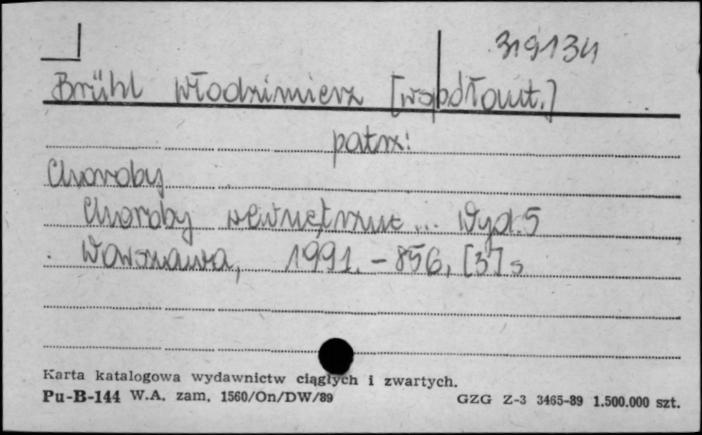 319134
Brühl Włodzimierz [współaut.]
patrz:
Choroby
Choroby wewnętrzne ... Wyd. 5
Warszawa, 1991. - 856, [3] s
Karta katalogowa wydawnictw ciągłych i zwartych.
Pu-B-144 W.A. zam. 1560/On/DW/89 GZG Z-3 3465-89 1.500.000 szt.